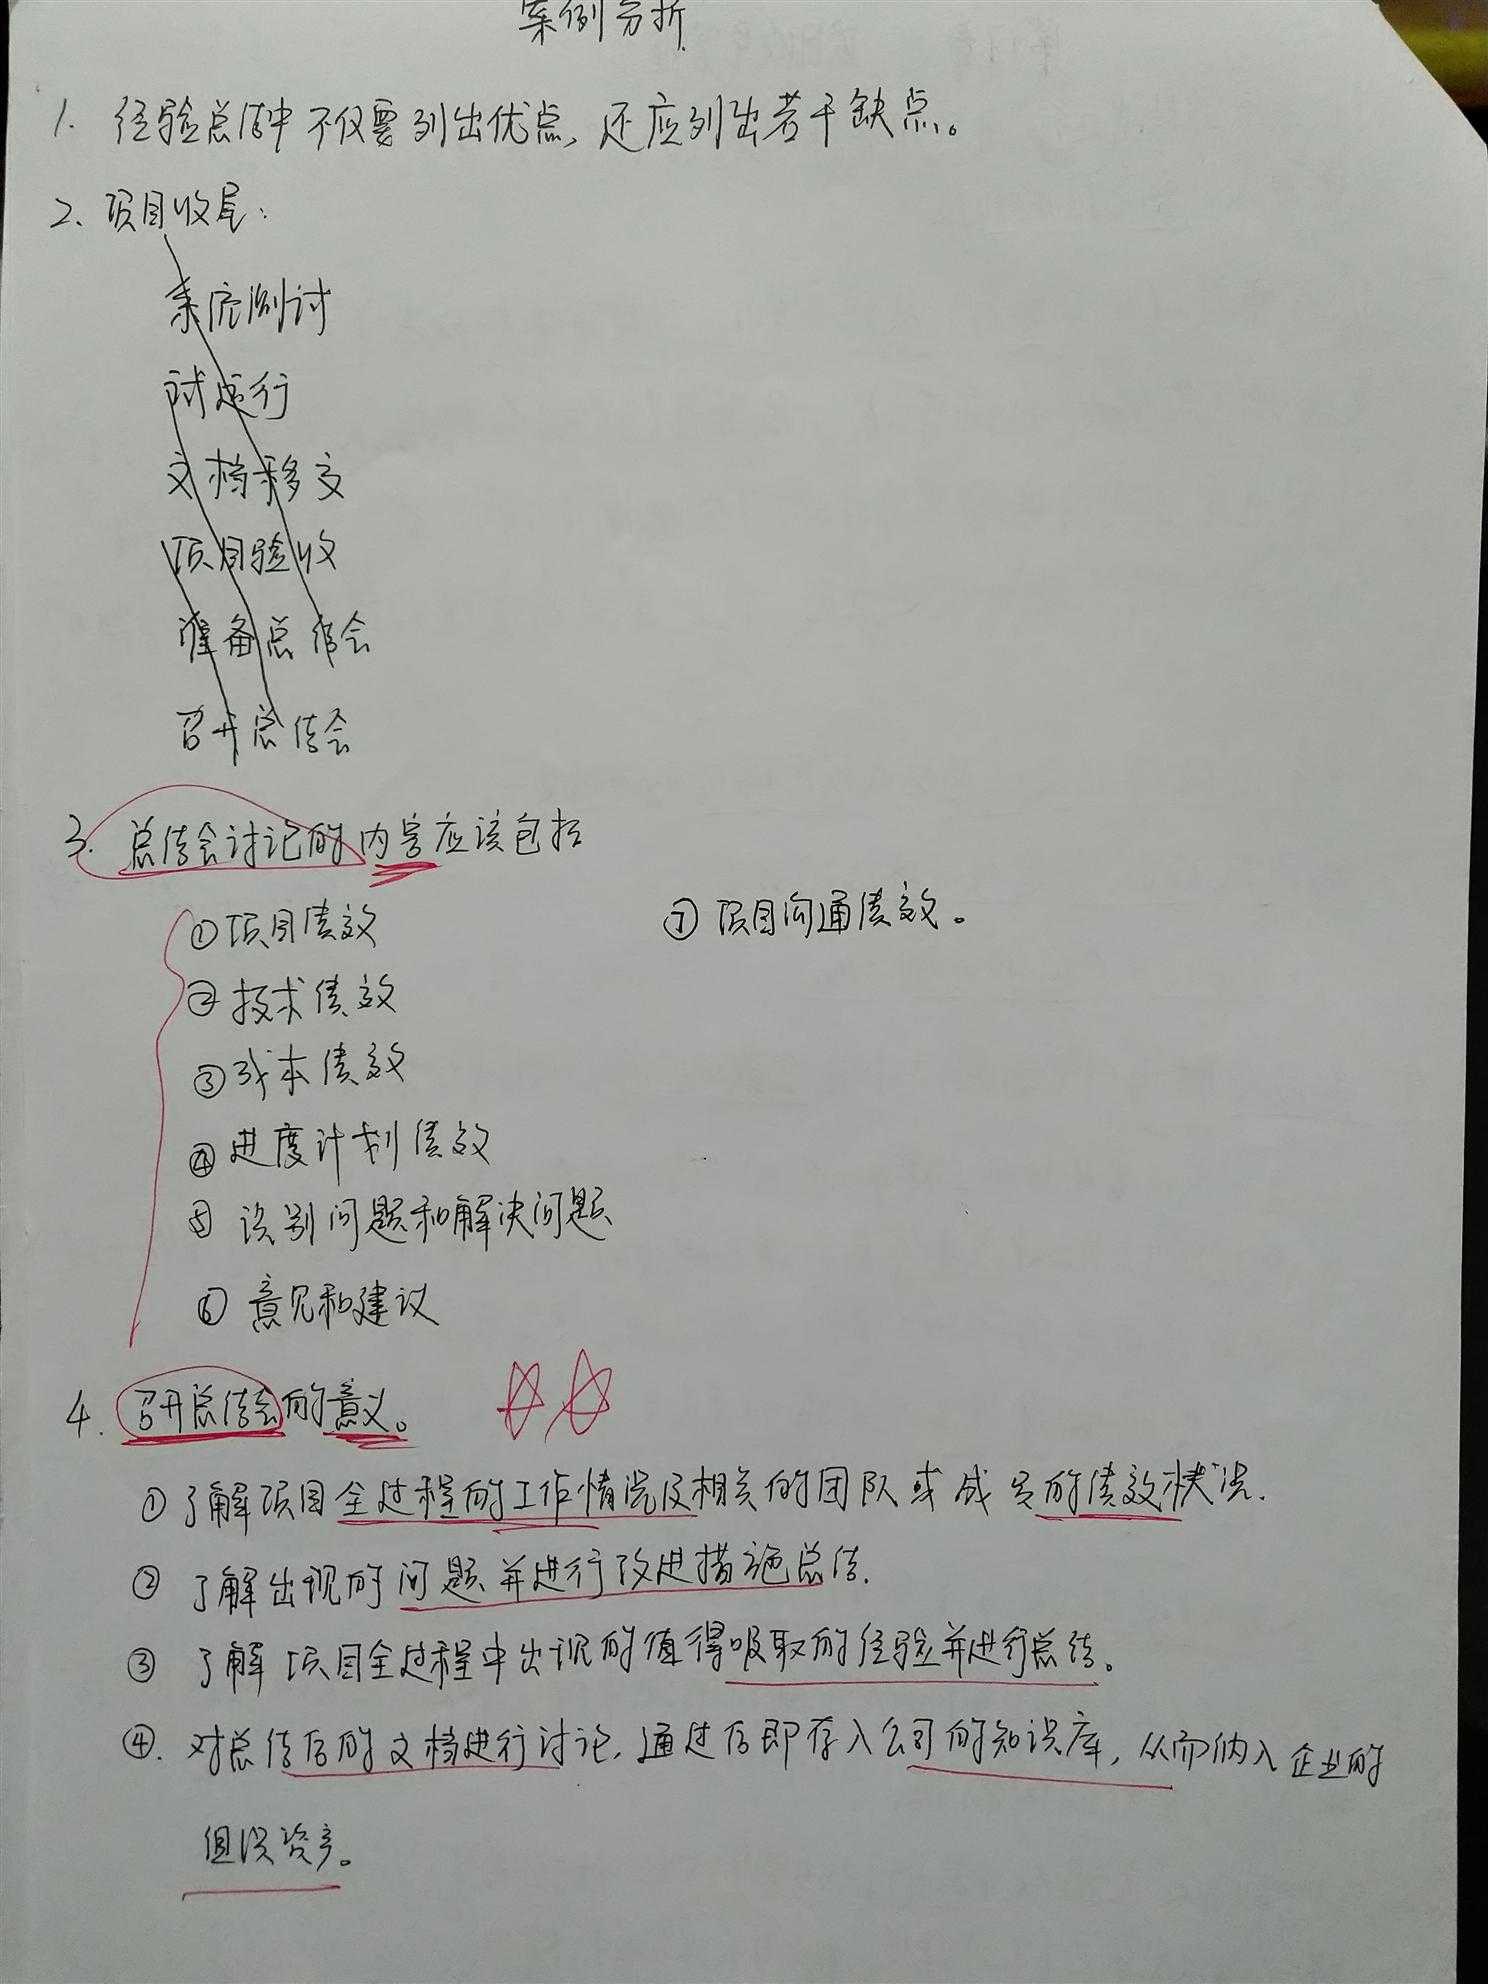 案例分析
1. 经验总结中不仅要列出优点,还应列出若干缺点。
2、项目收尾:
系统测讨
试运行
文档移交
项目验收
准备总结会
召开总结会
3. 总结会讨论的内容应该包括
①项目绩效
⑦项目沟通绩效。
②技术绩效
③成本绩效
④进度计划绩效
⑤识别问题和解决问题
⑥意见和建议
4. 召开总结会的意义。
①了解项目全过程的工作情况及相关的团队或成员的绩效状况.
②了解出现的问题并进行改进措施总结.
③了解项目全过程中出现的值得吸取的经验并进行总结。
④.对总结后的文档进行讨论,通过后即存入公司的知识库,从而纳入企业的
组织资产。